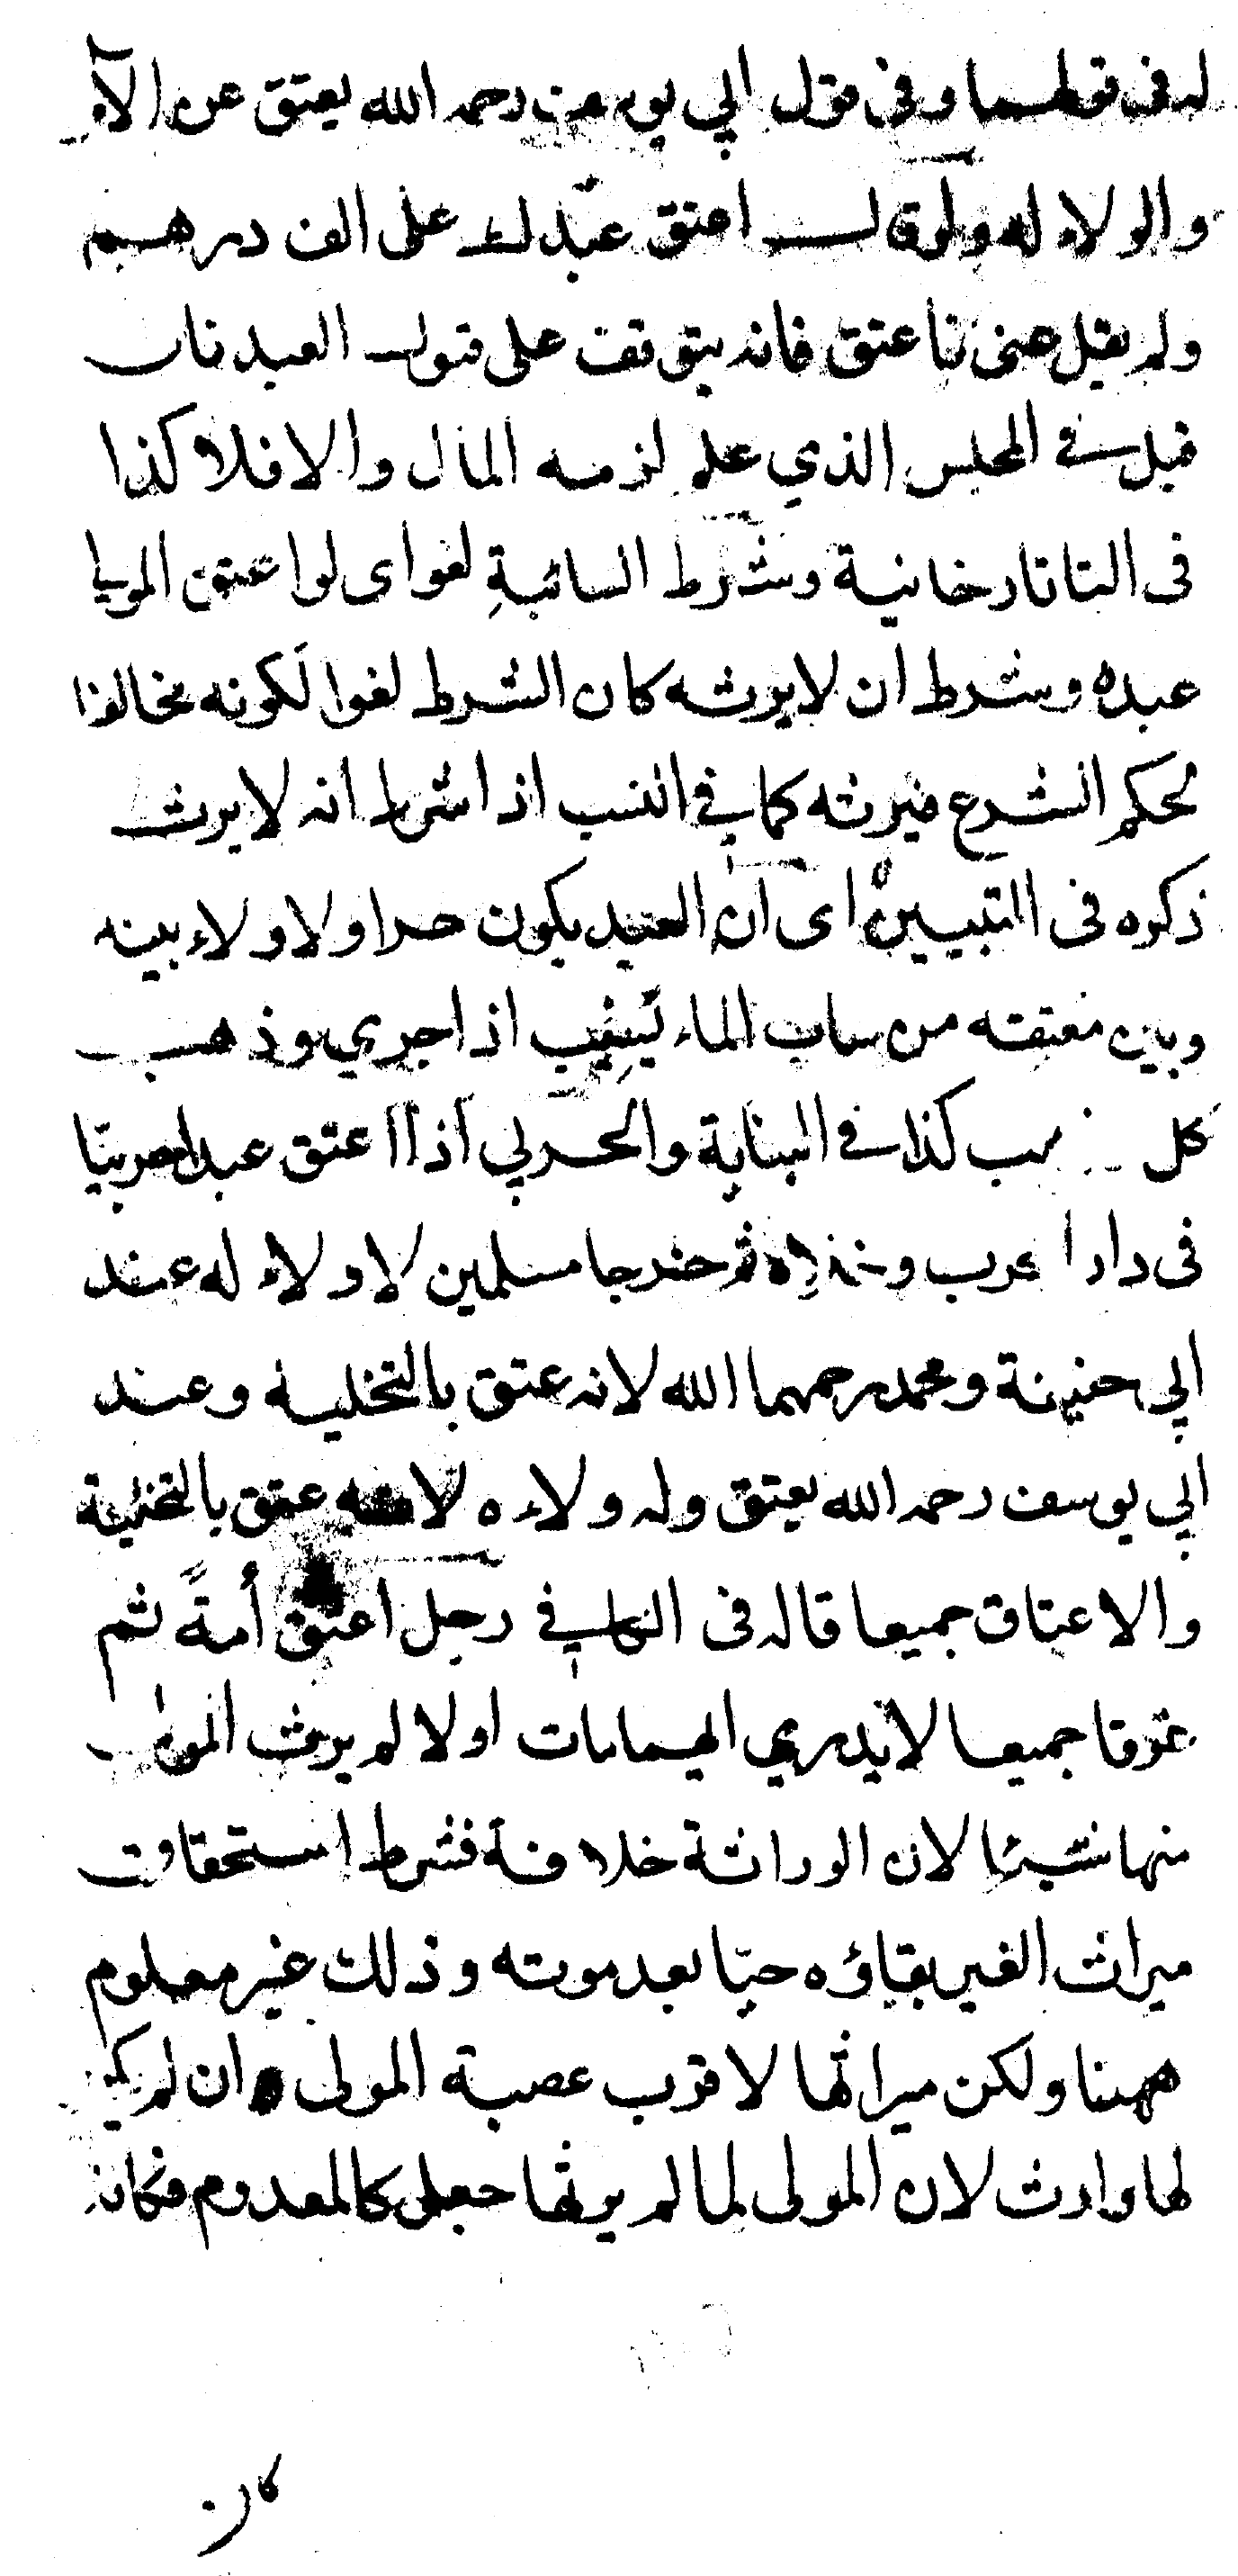 له في قولهما وفي قول ابي يوسف رحمه الله يعتق عن الآ
والولاء له ولو قال اعتق عبدك على الف درهم
ولم يقل عني فاعتق فانه يتوقف على قبول العبد فان
قبل في المجلس الذي علم لزمه المال والا فلا كذا
في التاتارخانية وشرط السائبة لغو اي لو اعتق المولى
عبده وشرط ان لا يرثه كان الشرط لغوا لكونه مخالفا
لحكم الشرع فيرثه كما في النسب اذا شرط انه لا يرث
ذكره في التبيين اي ان العبد يكون حرا ولا ولاء بينه
وبين معتقه من ساب الماء يسيب اذا جري وذهب
كل كذا في البناية والحربي اذا اعتق عبدا حربيا
في دار الحرب وخلاه ثم خرجا مسلمين لا ولاء له عند
ابي حنيفة ومحمد رحمهما الله لانه عتق بالتخلية وعند
ابي يوسف رحمه الله يعتق وله ولاءه لانه عتق بالتخلية
والاعتاق جميعا قاله في رجل اعتق أمةً ثم
غرقا جميعا لا يدري ايهما مات اولا لم يرث المولى
منها شيئا لان الوراثة خلافة فشرط استحقاق
ميراث الغير بقاؤه حيا بعد موته وذلك غير معلوم
ههنا ولكن ميراثها لاقرب عصبة المولى ان لم يكن
لها وارث لان المولى لما لم يرثها جعل كالمعدوم فكانه
كان